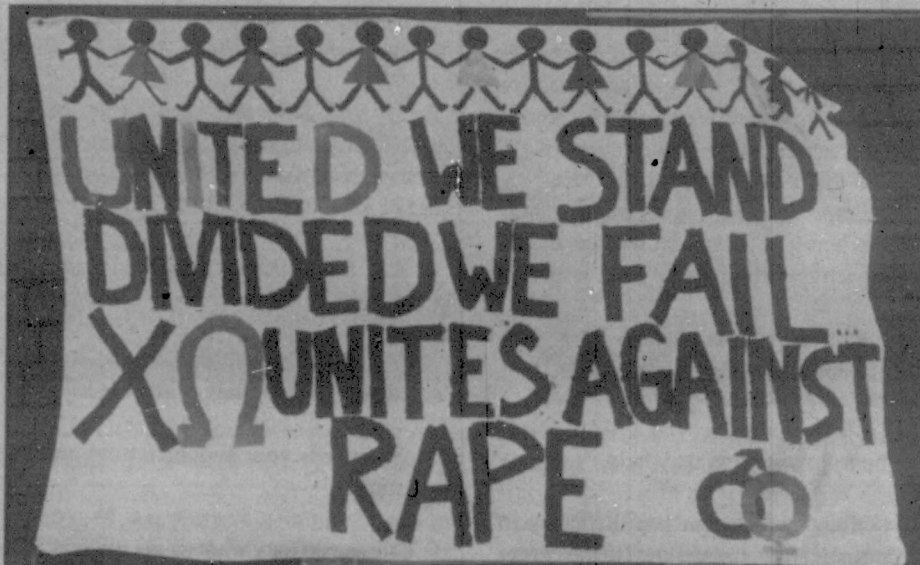 UNITED WE STAND
DIVIDED WE FAIL...
ΧΩ UNITES AGAINST
RAPE